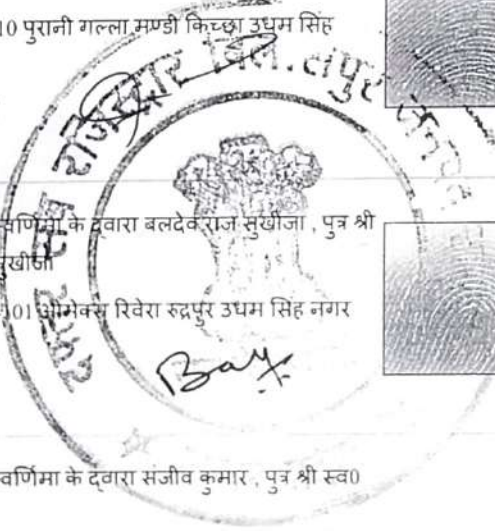 10 पुरानी गल्ला मण्डी किच्छा उधम सिंह
वर्णिमा के द्वारा बलदेव राज सुखीजा , पुत्र श्री
सुखीजा
101 ओमेक्स रिवेरा रुद्रपुर उधम सिंह नगर
वर्णिमा के द्वारा संजीव कुमार , पुत्र श्री स्व0